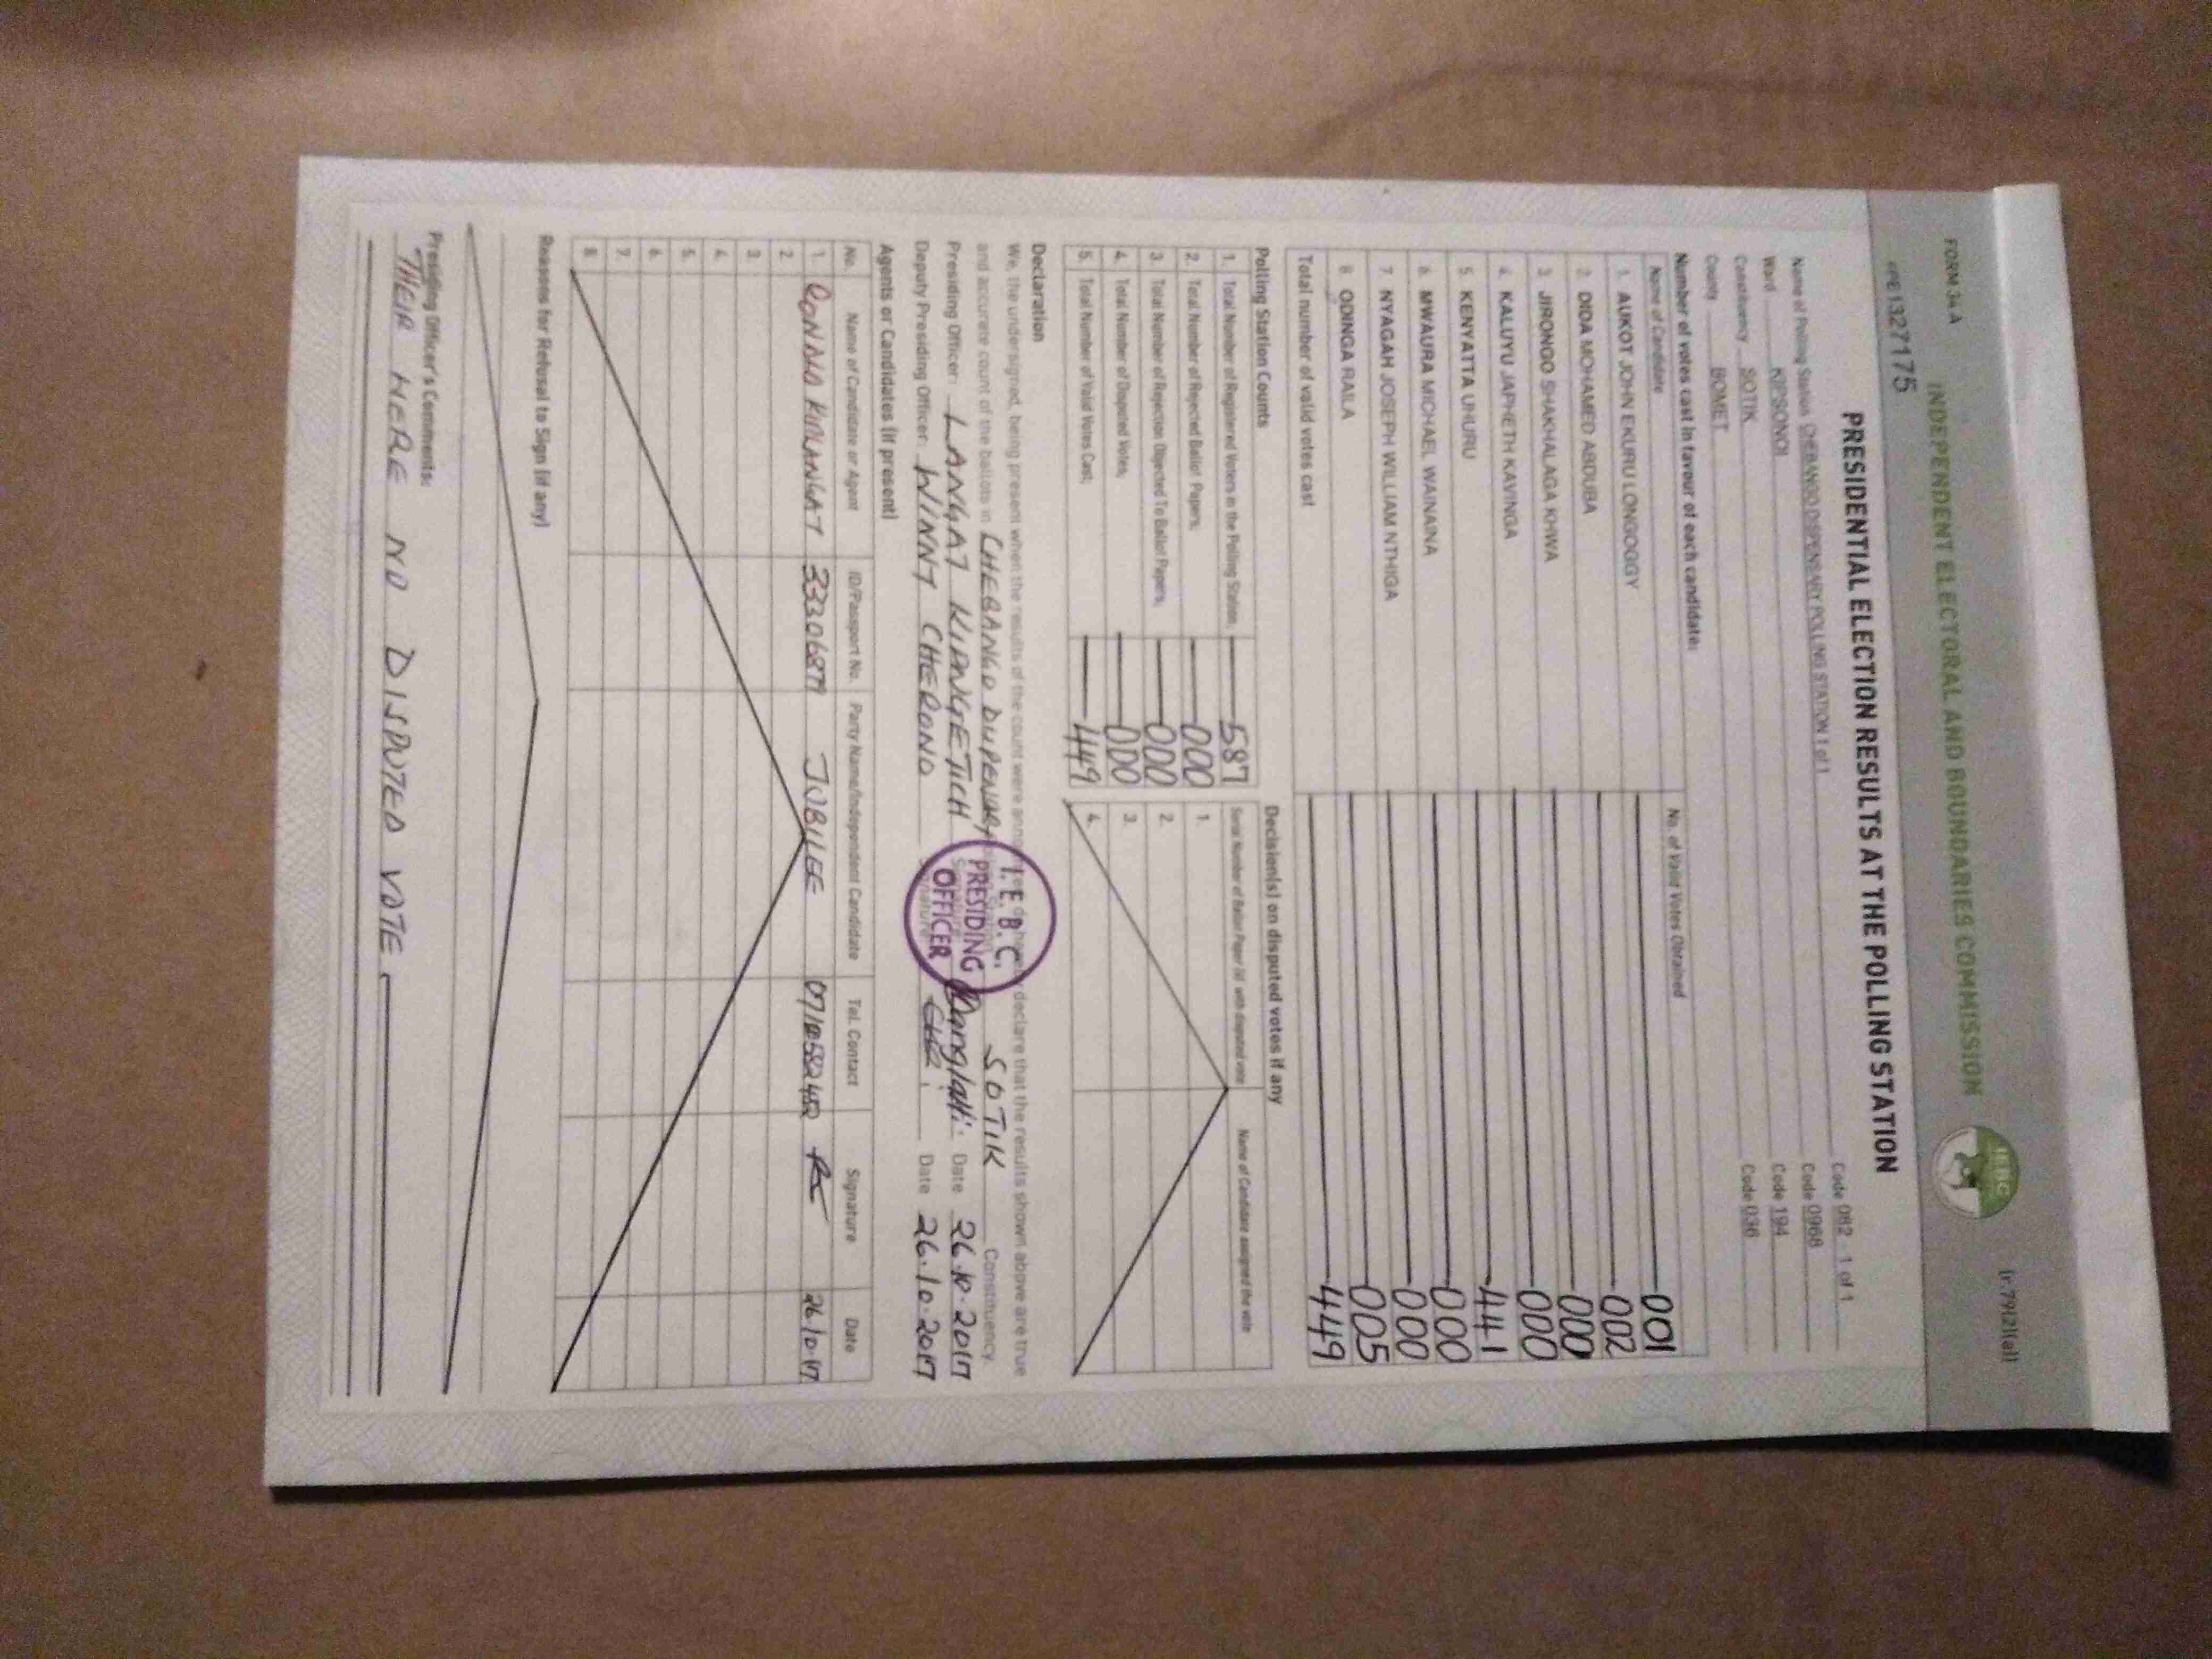 FORM 34A
[r.79(2)(a)]
INDEPENDENT ELECTORAL AND BOUNDARIES COMMISSION
IEBC
1327175
PRESIDENTIAL ELECTION RESULTS AT THE POLLING STATION
Name of Polling Station CHEBANGO DISPENSARY POLLING STATION 1 of 1 Code 082 - 1 of 1
Ward KIPSONOI Code 0968
Constituency SOTIK Code 194
County BOMET Code 036
Number of votes cast in favour of each candidate:
Name of Candidate No. of Valid Votes Obtained
1. AUKOT JOHN EKURU LONGOGGY 001
2. DIDA MOHAMED ABDUBA 002
3. JIRONGO SHAKHALAGA KHWA 000
4. KALUYU JAPHETH KAVINGA 000
5. KENYATTA UHURU 441
6. MWAURA MICHAEL WAINAINA 000
7. NYAGAH JOSEPH WILLIAM NTHIGA 000
8. ODINGA RAILA 005
Total number of valid votes cast 449
Polling Station Counts
1. Total Number of Registered Voters in the Polling Station 587
2. Total Number of Rejected Ballot Papers; 000
3. Total Number of Rejection Objected To Ballot Papers; 000
4. Total Number of Disputed Votes; 000
5. Total Number of Valid Votes Cast; 449
Decision(s) on disputed votes if any
Serial Number of Ballot Paper with disputed vote Name of Candidate assigned the vote
1.
2.
3.
4.
Declaration
We, the undersigned, being present when the results of the count were declare that the results shown above are true
and accurate count of the ballots in CHEBANGO SOTIK Constituency.
Presiding Officer: LANGAT KIPNGETICH Date 26.10.2017
Deputy Presiding Officer: WINNY CHERONO Signature Date 26.10.2017
I.E.B.C.
PRESIDING
OFFICER
Agents or Candidates (if present)
No. Name of Candidate or Agent ID/Passport No. Party Name/Independent Candidate Tel. Contact Signature Date
1. JUBILEE 26.10.17
2.
3.
4.
5.
6.
7.
8.
Reasons for Refusal to Sign (if any)
Presiding Officer's Comments:
THEIR HERE NO DISPUTED VOTE